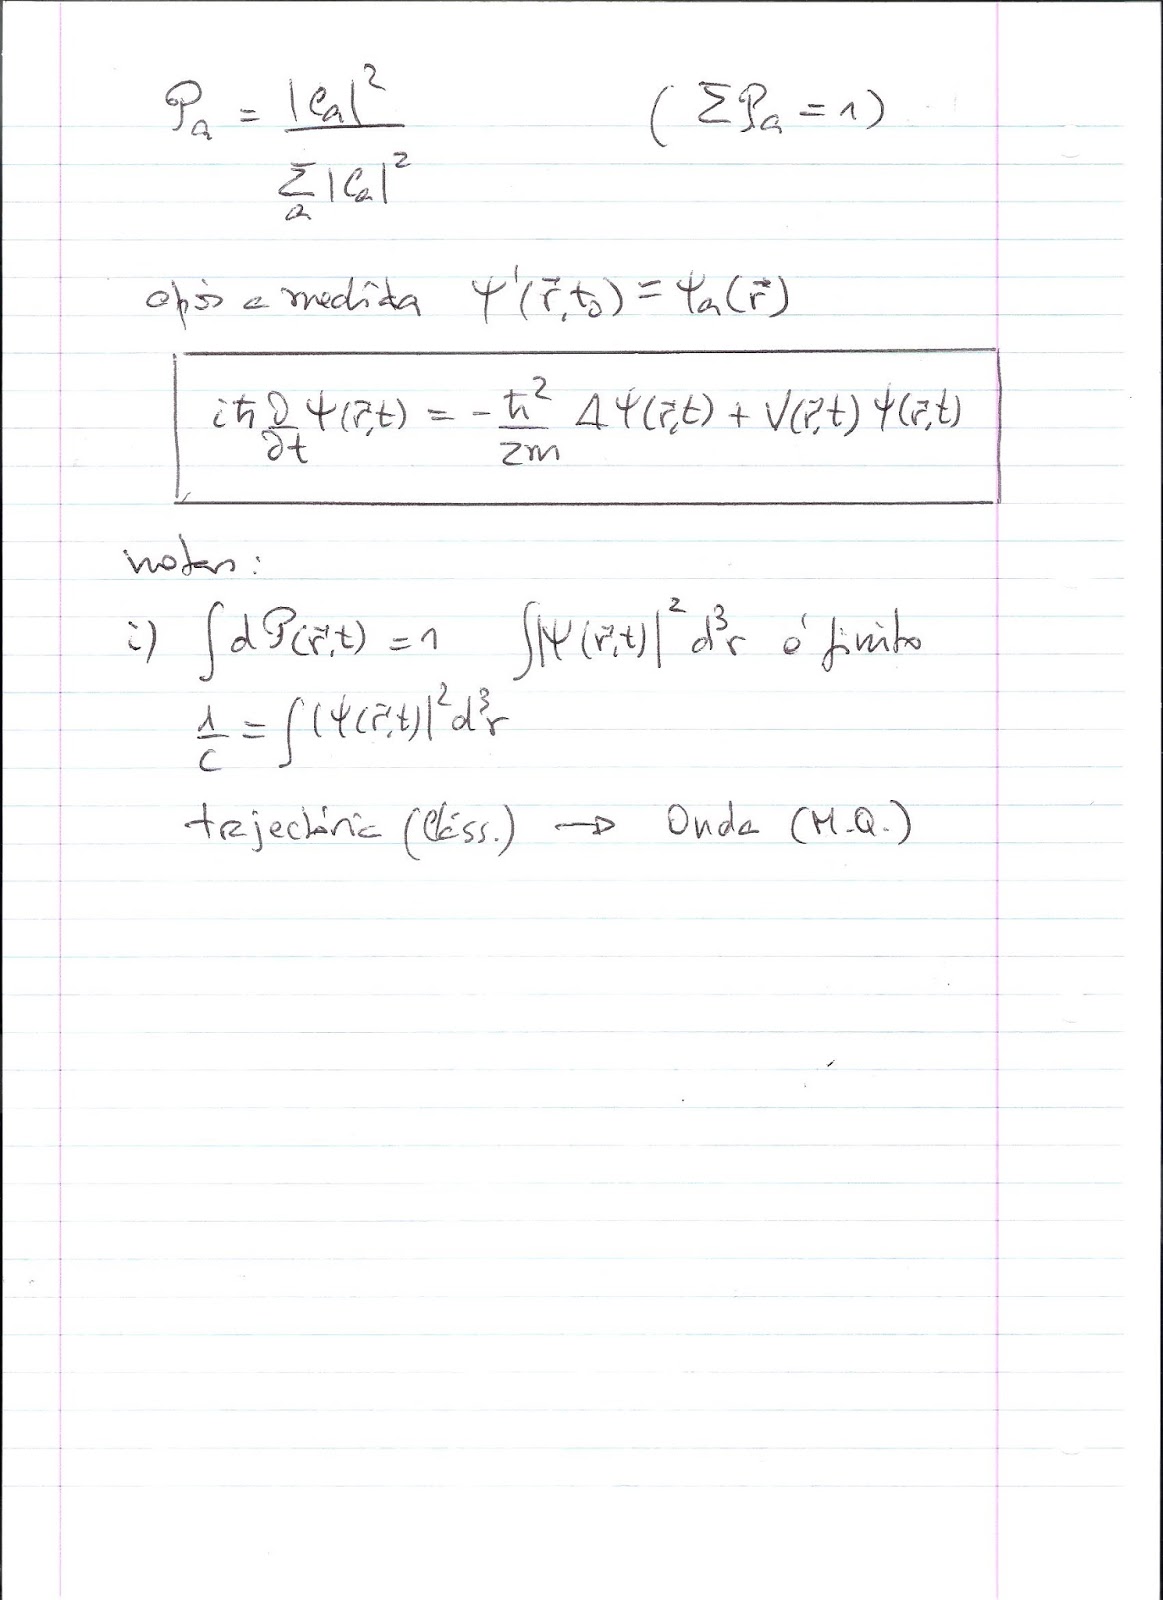 𝒫ₐ = |cₐ|² / Σₐ |cₐ|² (Σ𝒫ₐ = 1)
após a medida Ψ'(r⃗,t₀) = Ψₐ(r⃗)
iħ ∂/∂t Ψ(r⃗,t) = -ħ²/2m ΔΨ(r⃗,t) + V(r⃗,t) Ψ(r⃗,t)
notas:
i) ∫d𝒫(r⃗,t) = 1 ∫|Ψ(r⃗,t)|² d³r é finito
1/C = ∫|Ψ(r⃗,t)|² d³r
trajectória (Cláss.) → Onda (M.Q.)